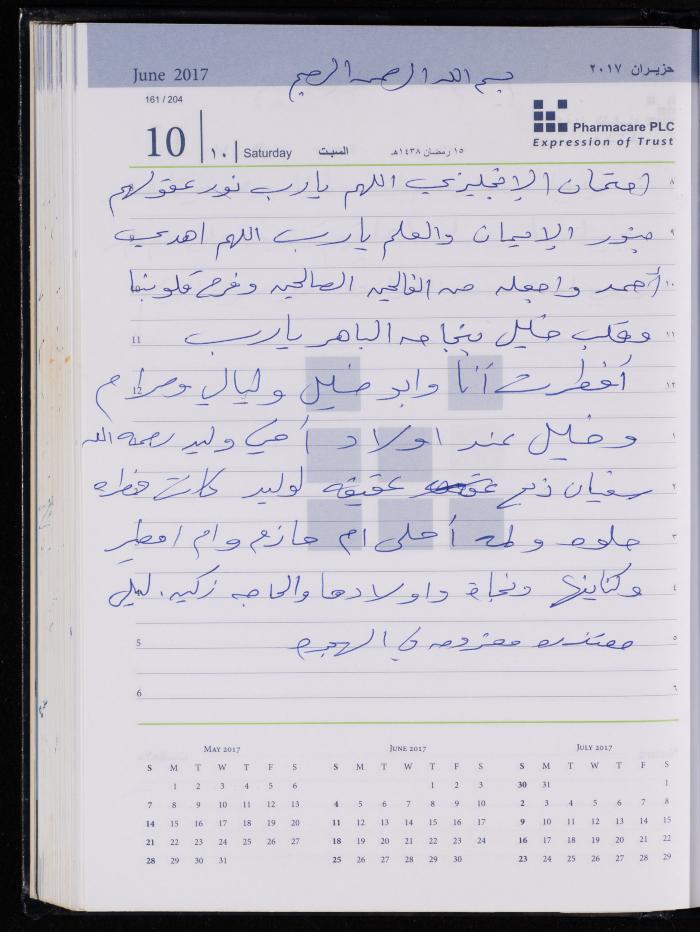 June 2017
بسم الله الرحمن الرحيم
حزيران ٢٠١٧
161 / 204
10 | ١٠ | Saturday السبت ١٥ رمضان ١٤٣٨هـ
Pharmacare PLC
Expression of Trust
٨
امتحان الإنجليزي اللهم يارب نور عقولهم
٩
بنور الإيمان والعلم يارب اللهم اهدي
١٠
أحمد واجعله من الفالحين الصالحين وفرح قلوبنا
11 ١١
وقلب خليل بنجاحه الباهر يارب
12 ١٢
أفطرت أنا وابو خليل وليالي ومرام
١
وخليل عند اولاد أخي وليد رحمه الله
٢
سفيان ذبح عقيقه لوليد كانت
٣
حلوه ولمه أحلى ام حازم وام
٤
وكناينها ونجاة واولادها والحاجه زكيه. ليلى
5 ٥
في
6 ٦
May 2017
S M T W T F S
1 2 3 4 5 6
7 8 9 10 11 12 13
14 15 16 17 18 19 20
21 22 23 24 25 26 27
28 29 30 31
June 2017
S M T W T F S
1 2 3
4 5 6 7 8 9 10
11 12 13 14 15 16 17
18 19 20 21 22 23 24
25 26 27 28 29 30
July 2017
S M T W T F S
30 31 1
2 3 4 5 6 7 8
9 10 11 12 13 14 15
16 17 18 19 20 21 22
23 24 25 26 27 28 29